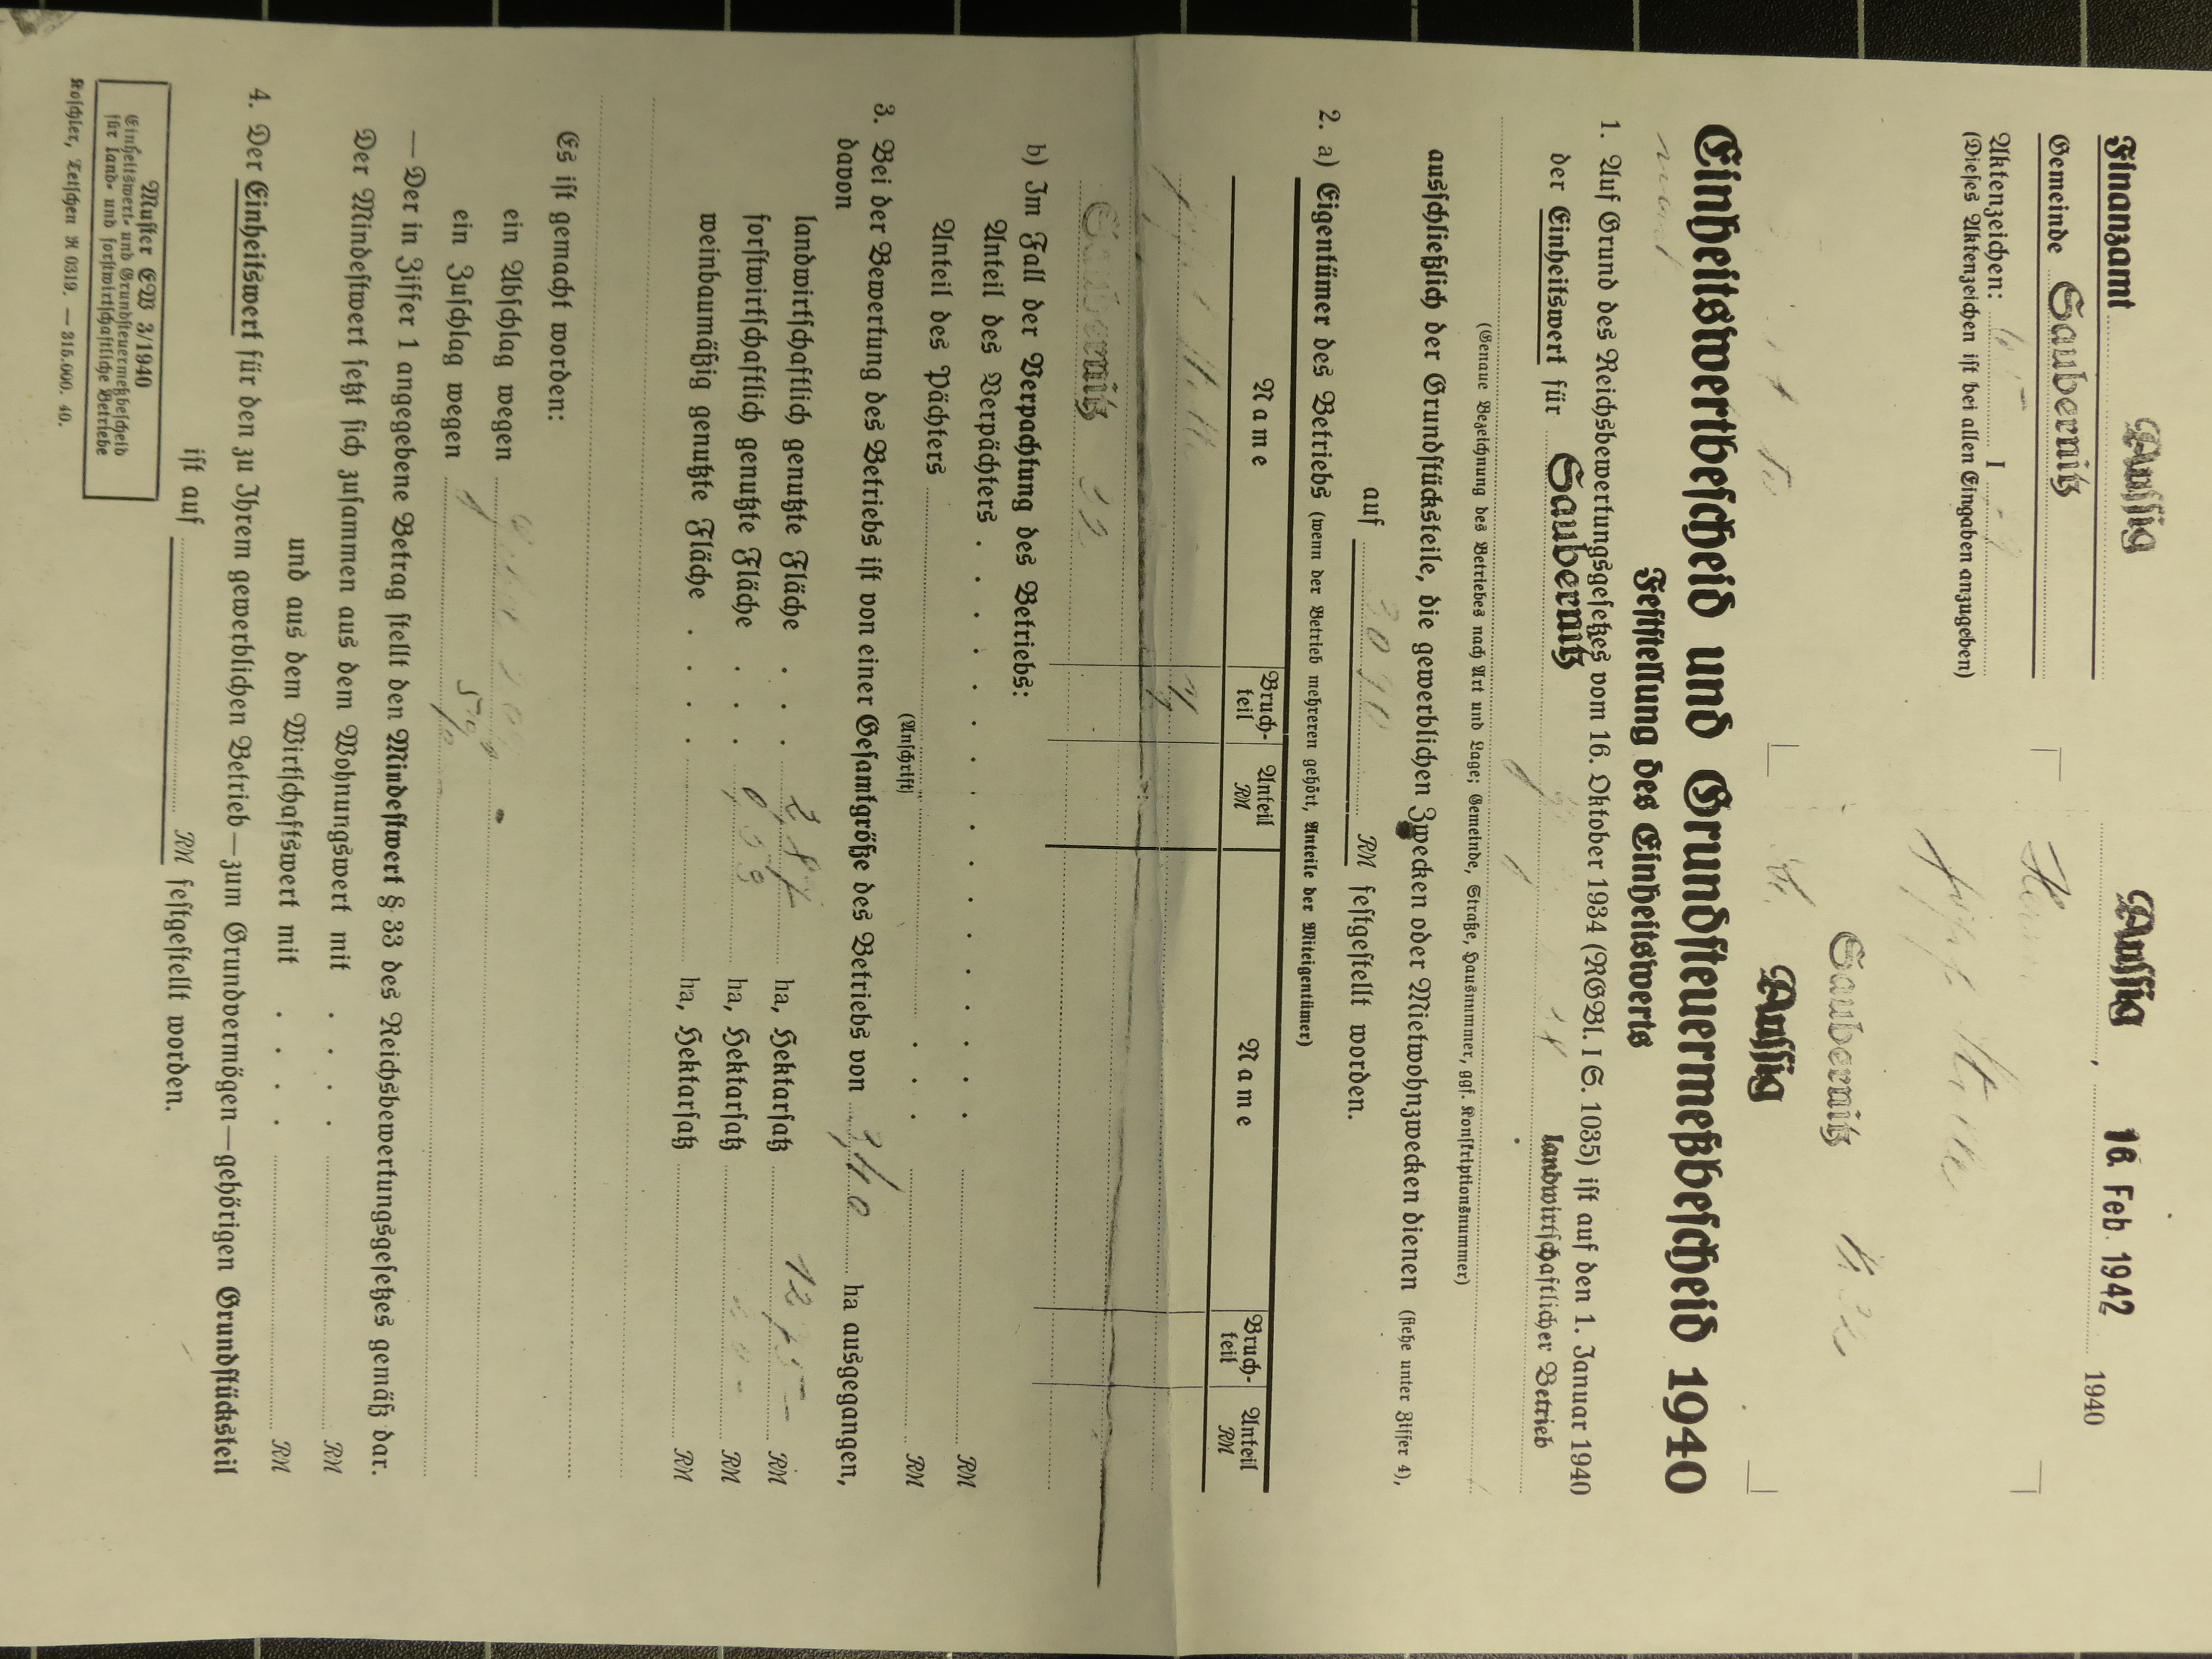 Finanzamt Aussig
Aussig, 16. Feb. 1942 1940
Gemeinde Saubernitz
Aktenzeichen: I
(Dieses Aktenzeichen ist bei allen Eingaben anzugeben)
Herrn
Josef
Saubernitz
Aussig
Einheitswertbescheid und Grundsteuermeßbescheid 1940
Feststellung des Einheitswerts
1. Auf Grund des Reichsbewertungsgesetzes vom 16. Oktober 1934 (RGBl. I S. 1035) ist auf den 1. Januar 1940
der Einheitswert für Saubernitz landwirtschaftlicher Betrieb
(Genaue Bezeichnung des Betriebes nach Art und Lage; Gemeinde, Straße, Hausnummer, ggf. Konskriptionsnummer)
ausschließlich der Grundstücksteile, die gewerblichen Zwecken oder Mietwohnzwecken dienen (siehe unter Ziffer 4),
auf RM festgestellt worden.
2. a) Eigentümer des Betriebs (wenn der Betrieb mehreren gehört, Anteile der Miteigentümer)
Name Bruch- Anteil Name Bruch- Anteil
teil RM teil RM
1/1
Saubernitz
b) Im Fall der Verpachtung des Betriebs:
Anteil des Verpächters . . . . . . . . . . . . . . . . . RM
Anteil des Pächters . . . RM
(Anschrift)
3. Bei der Bewertung des Betriebs ist von einer Gesamtgröße des Betriebs von 3,40 ha ausgegangen,
davon
landwirtschaftlich genutzte Fläche . . . 2,87 ha, Hektarsatz 1275 - RM
forstwirtschaftlich genutzte Fläche . . . 0,53 ha, Hektarsatz RM
weinbaumäßig genutzte Fläche . . . . ha, Hektarsatz RM
Es ist gemacht worden:
ein Abschlag wegen
ein Zuschlag wegen 5%
— Der in Ziffer 1 angegebene Betrag stellt den Mindestwert § 33 des Reichsbewertungsgesetzes gemäß dar.
Der Mindestwert setzt sich zusammen aus dem Wohnungswert mit . . . . RM
und aus dem Wirtschaftswert mit . . . . RM
4. Der Einheitswert für den zu Ihrem gewerblichen Betrieb — zum Grundvermögen — gehörigen Grundstücksteil
ist auf RM festgestellt worden.
Muster EW 3/1940
Einheitswert- und Grundsteuermeßbescheid
für land- und forstwirtschaftliche Betriebe
Koschler, Tetschen R 0319. — 315.000. 40.